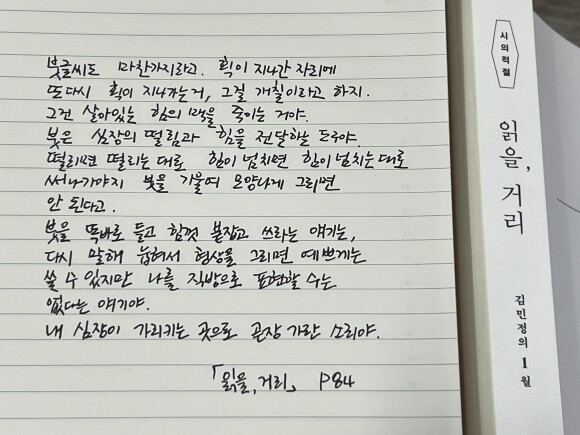 붓글씨도 마찬가지라고. 획이 지나간 자리에
또다시 획이 지나가는거, 그걸 개칠이라고 하지.
그건 살아있는 힘의 맥을 죽이는 거야.
붓은 심장의 떨림과 힘을 전달하는 도구야.
떨리면 떨리는 대로 힘이 넘치면 힘이 넘치는대로
써나가야지 붓을 기울여 모양나게 그리면
안 된다고.
붓을 똑바로 들고 힘껏 붙잡고 쓰라는 얘기는,
다시 말해 눕혀서 형상을 그리면 예쁘게는
쓸 수 있지만 나를 직방으로 표현할 수는
없다는 얘기야.
내 심장이 가리키는 곳으로 곧장 가란 소리야.
「읽을, 거리」 P84
시의적절
읽을, 거리
김민정의 1월